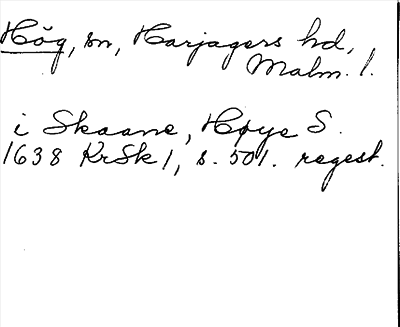 Hög, sn, Harjagers hd,
Malm. l.
i Skaane, Høye S.
1638 KrSk 1, s. 501. regest.